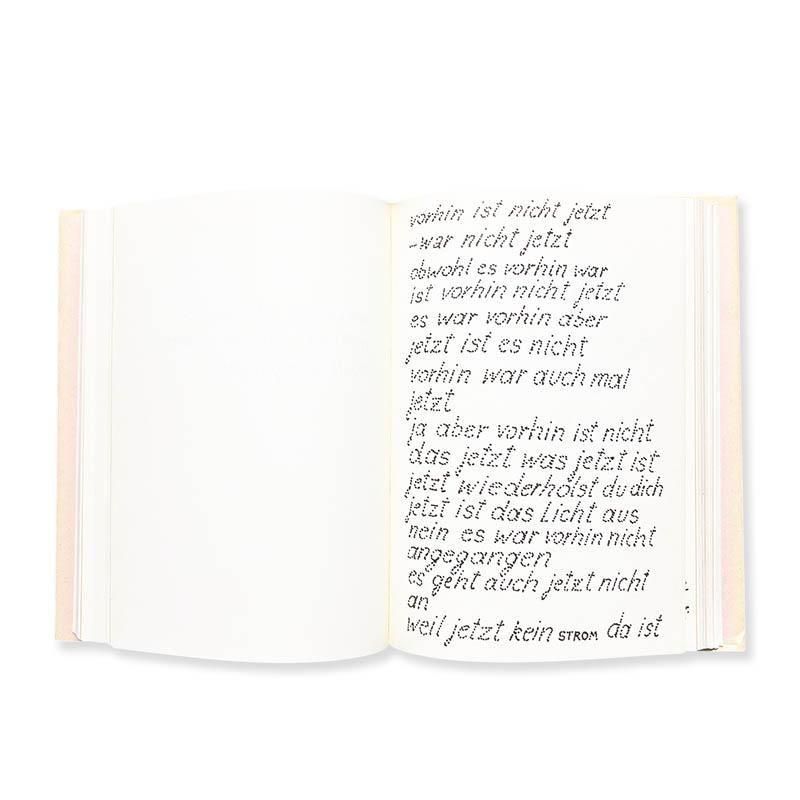 vorhin ist nicht jetzt
–war nicht jetzt
obwohl es vorhin war
ist vorhin nicht jetzt
es war vorhin aber
jetzt ist es nicht
vorhin war auch mal
jetzt
ja aber vorhin ist nicht
das jetzt was jetzt ist
jetzt wiederholst du dich
jetzt ist das Licht aus
nein es war vorhin nicht
angegangen
es geht auch jetzt nicht
an
weil jetzt kein STROM da ist